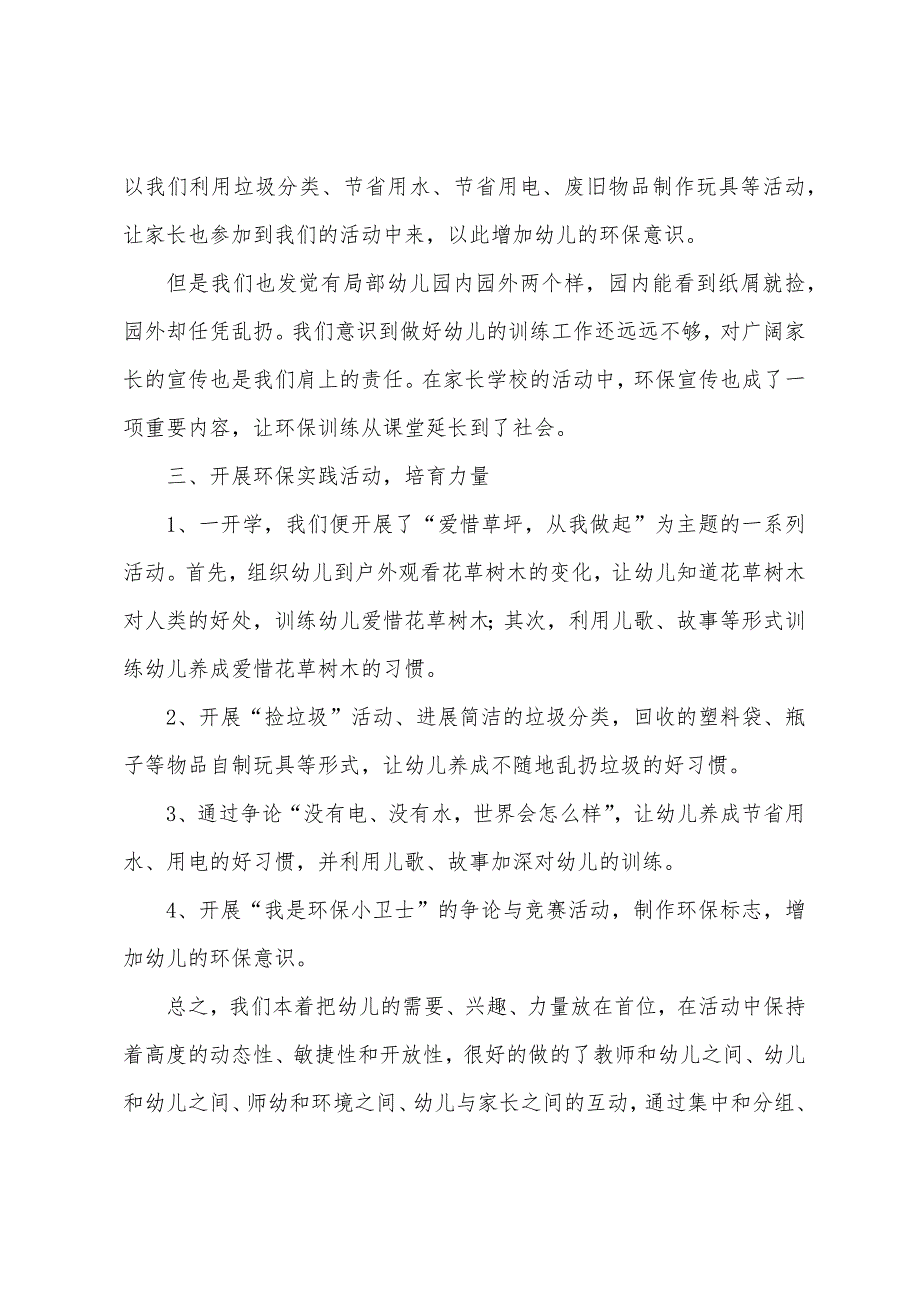 以我们利用垃圾分类、节省用水、节省用电、废旧物品制作玩具等活动，
让家长也参加到我们的活动中来，以此增加幼儿的环保意识。
但是我们也发觉有局部幼儿园内园外两个样，园内能看到纸屑就捡，
园外却任凭乱扔。我们意识到做好幼儿的训练工作还远远不够，对广阔家
长的宣传也是我们肩上的责任。在家长学校的活动中，环保宣传也成了一
项重要内容，让环保训练从课堂延长到了社会。
三、开展环保实践活动，培育力量
1、一开学，我们便开展了“爱惜草坪，从我做起”为主题的一系列
活动。首先，组织幼儿到户外观看花草树木的变化，让幼儿知道花草树木
对人类的好处，训练幼儿爱惜花草树木；其次，利用儿歌、故事等形式训
练幼儿养成爱惜花草树木的习惯。
2、开展“捡垃圾”活动、进展简洁的垃圾分类，回收的塑料袋、瓶
子等物品自制玩具等形式，让幼儿养成不随地乱扔垃圾的好习惯。
3、通过争论“没有电、没有水，世界会怎么样”，让幼儿养成节省用
水、用电的好习惯，并利用儿歌、故事加深对幼儿的训练。
4、开展“我是环保小卫士”的争论与竞赛活动，制作环保标志，增
加幼儿的环保意识。
总之，我们本着把幼儿的需要、兴趣、力量放在首位，在活动中保持
着高度的动态性、敏捷性和开放性，很好的做的了教师和幼儿之间、幼儿
和幼儿之间、师幼和环境之间、幼儿与家长之间的互动，通过集中和分组、